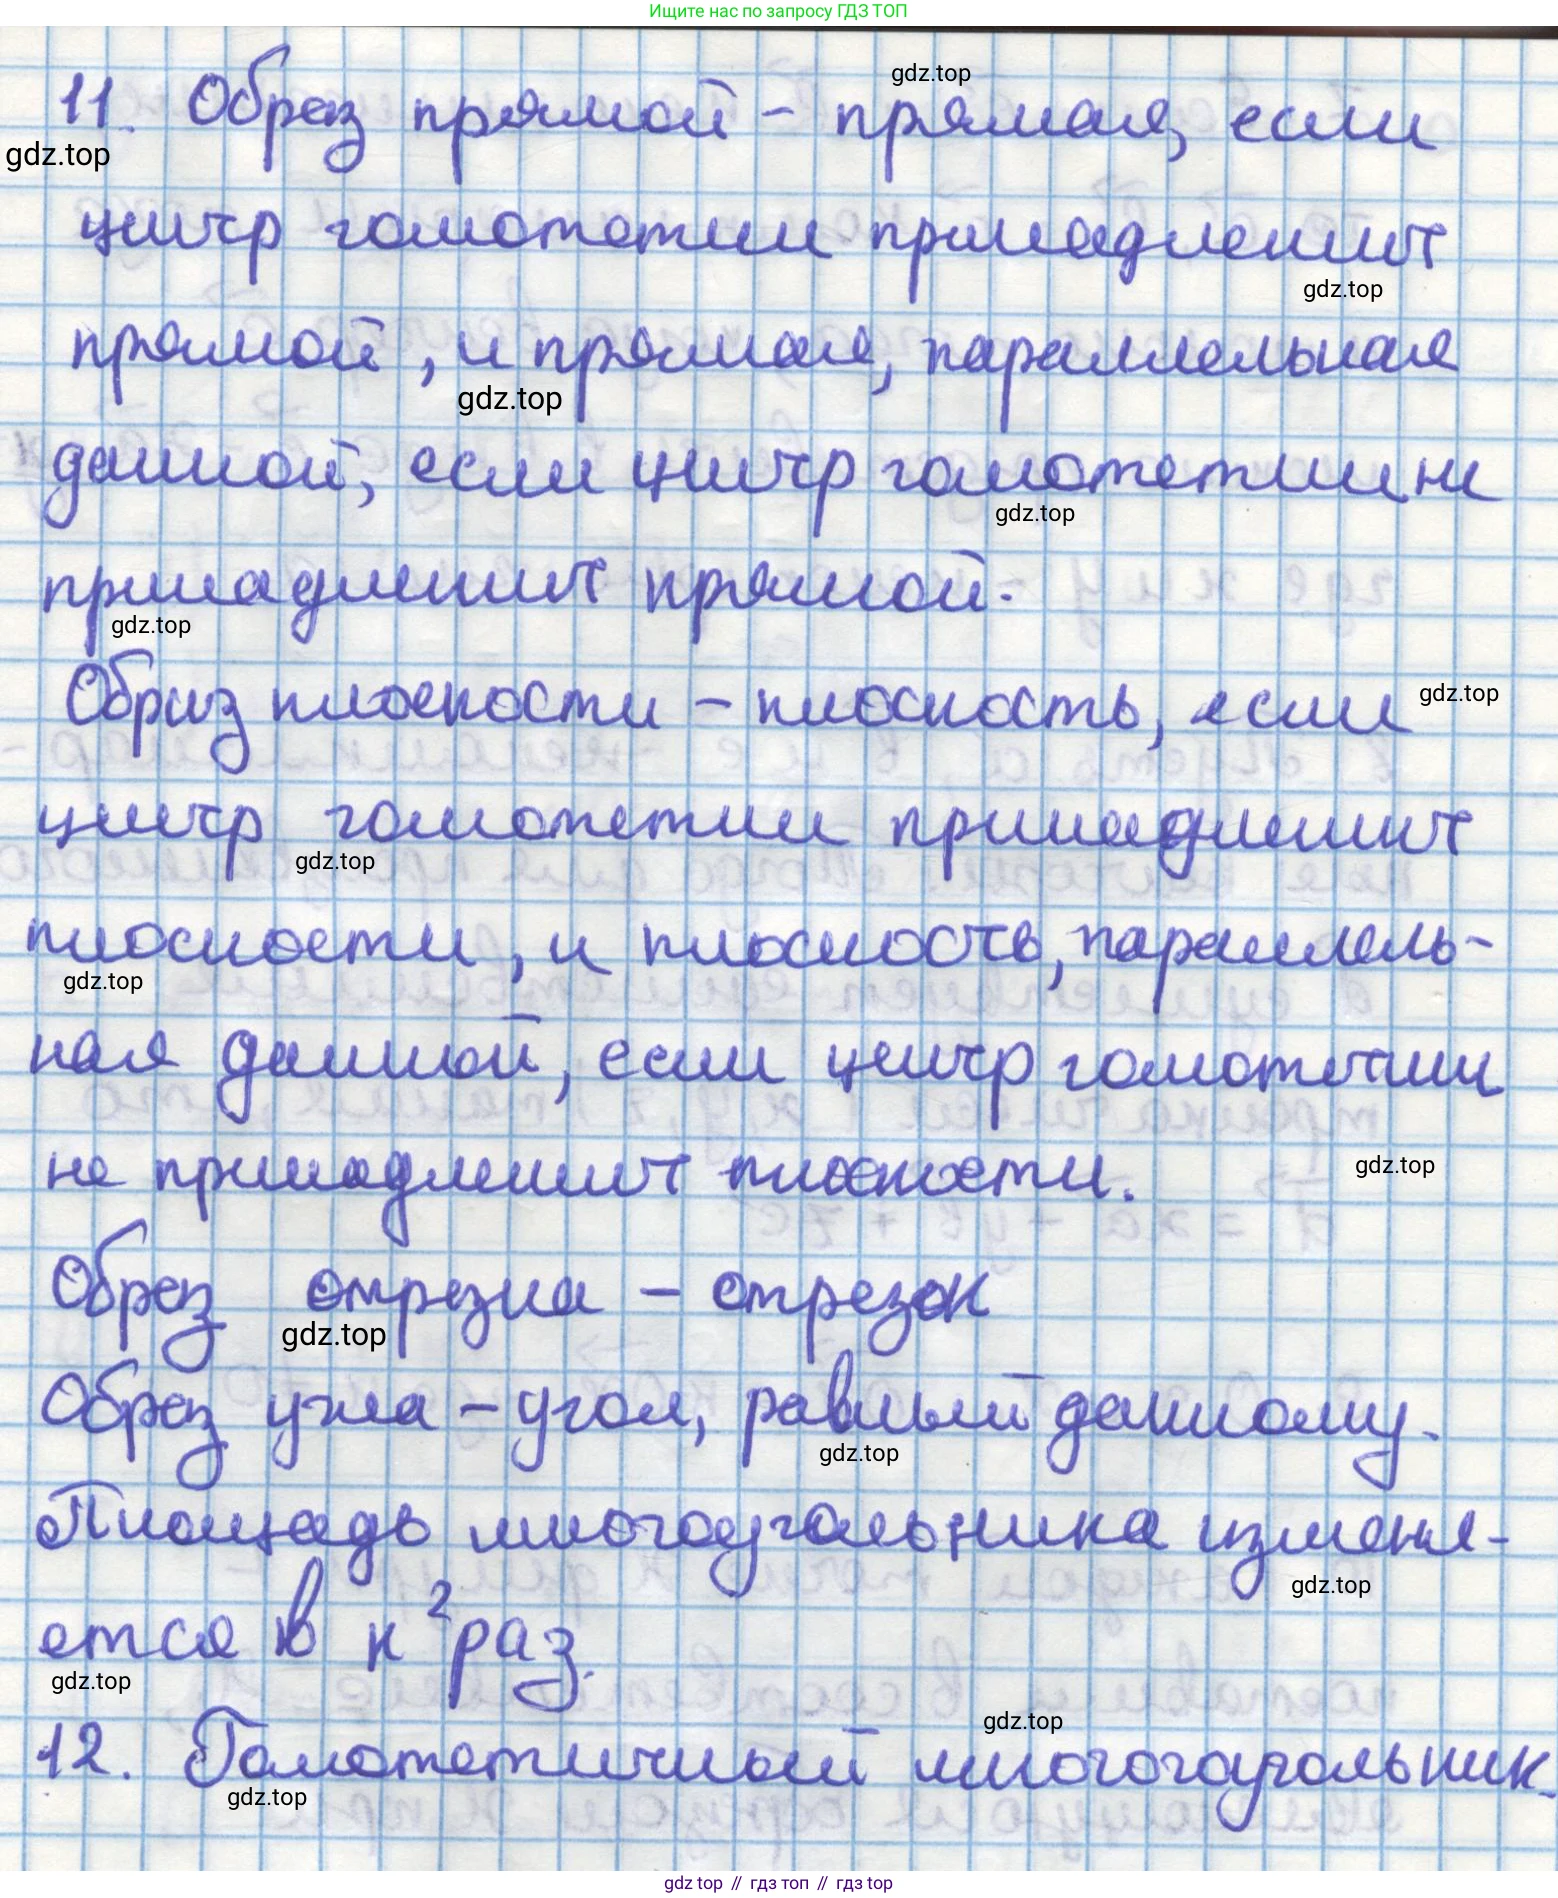 Ищите нас по запросу ГДЗ ТОП
gdz.top
11. Образ прямой - прямая, если
gdz.top
центр гомотетии принадлежит
gdz.top
прямой, и прямая, параллельная
gdz.top
данной, если центр гомотетии не
gdz.top
принадлежит прямой.
gdz.top
Образ плоскости - плоскость, если
gdz.top
центр гомотетии принадлежит
gdz.top
плоскости, и плоскость, параллель-
gdz.top
ная данной, если центр гомотетии
не принадлежит плоскости.
gdz.top
Образ отрезка - отрезок
gdz.top
Образ угла - угол, равный данному.
gdz.top
Площадь многоугольника изменя-
gdz.top
ется в к² раз.
gdz.top
gdz.top
12. Гомотетичный многогоугольник.
gdz.top
gdz top // гдз топ // гдз top